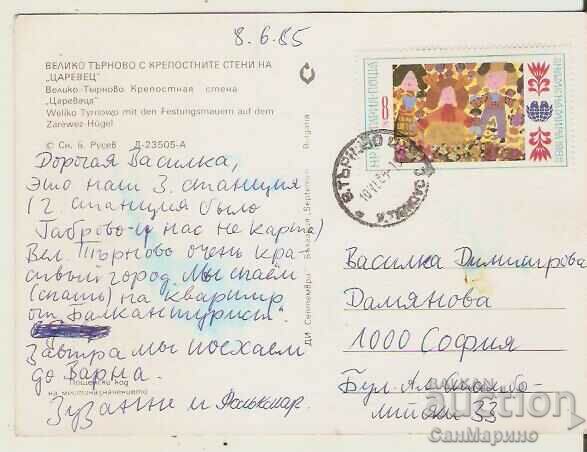 8.6.85
ВЕЛИКО ТЪРНОВО С КРЕПОСТНИТЕ СТЕНИ НА
„ЦАРЕВЕЦ"
Велико-Тырново Крепостная стена
„Царевеца"
Weliko Tyrnowo mit den Festungsmauern auf dem
Zarewez-Hügel
© Сн. Б. Русев Д-23505-А
Дорогая Василка,
Это наш 3. станция
(2. станция было
Габрово-и нас не карта)
Вел. Търново очень кра-
сивый город. Мы спаем
(спать) на квартир
от „Балкантурист".
Завтра мы поехаем
до Варна.
Пощенски код
на местоназначението
Зузанне и
ДИ „Септември"
Bulgaria
НР БЪЛГАРИЯ·ПОЩА
8
В. ТЪРНОВО
Василка Димитрова
Дамянова
1000 София
Бул. Ал. Стамбо-
лийски 33
auction
СанМарино